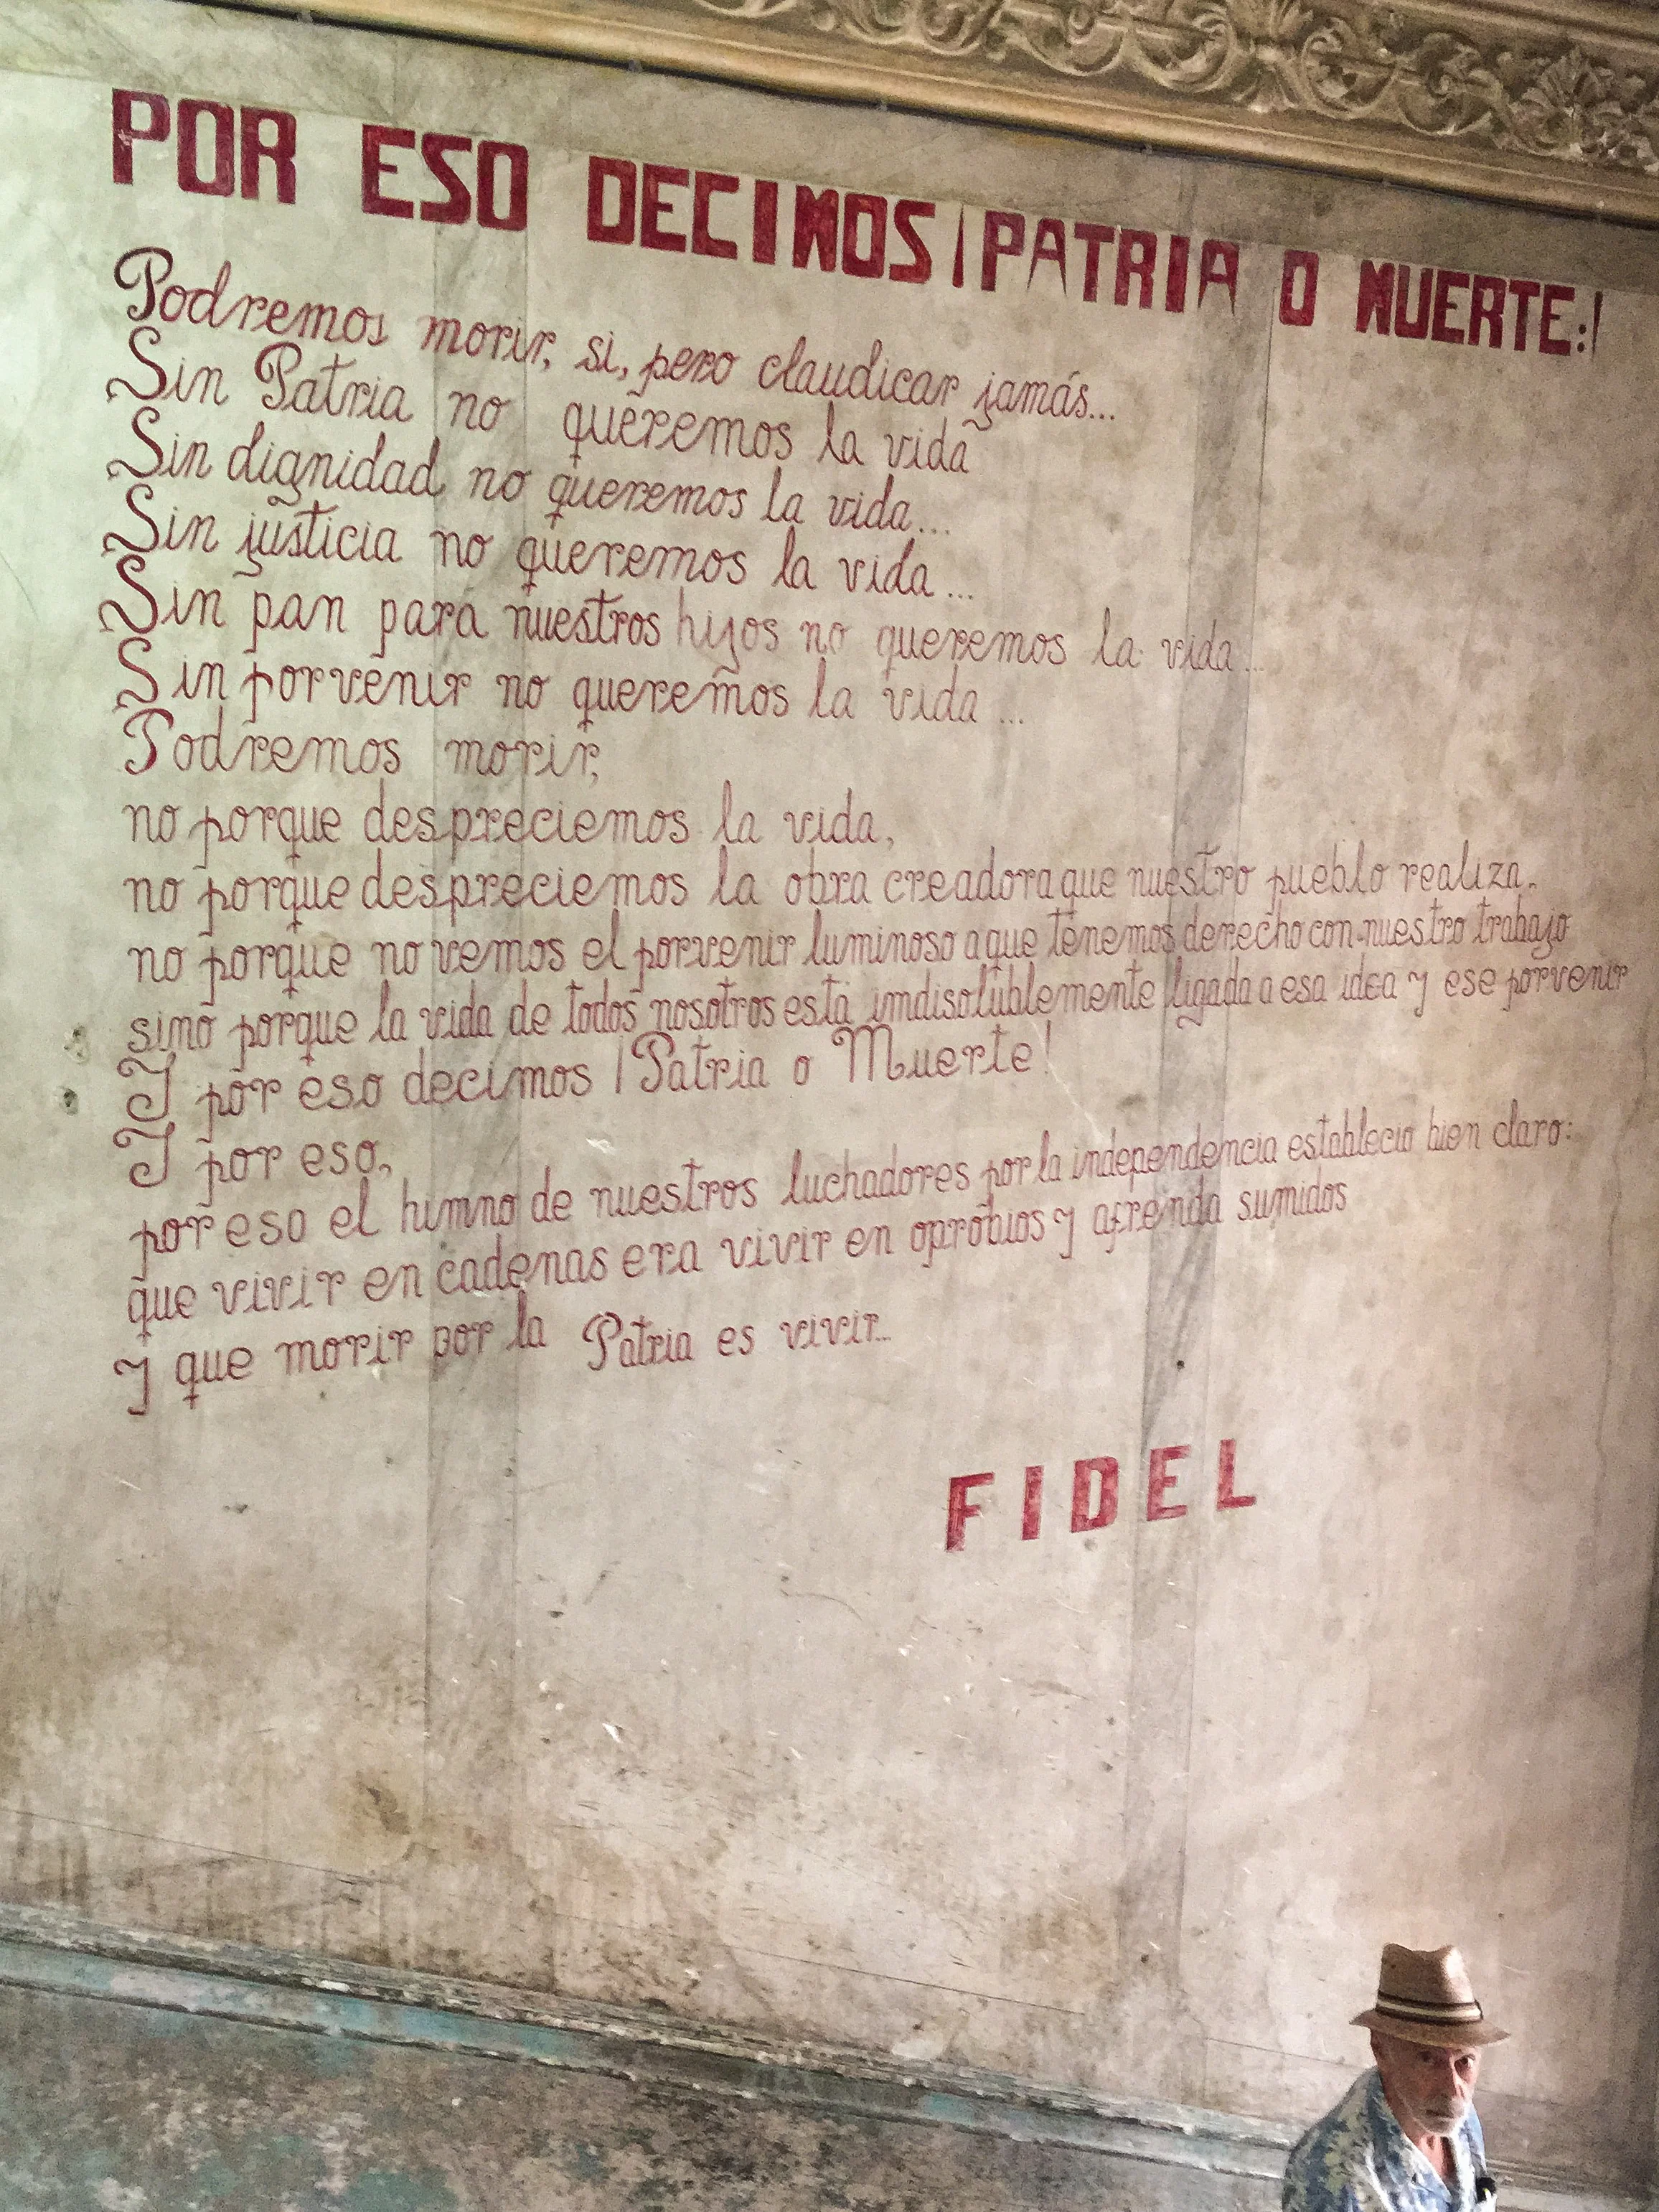 POR ESO DECIMOS ¡PATRIA O MUERTE:!
Podremos morir, si, pero claudicar jamás...
Sin Patria no queremos la vida
Sin dignidad no queremos la vida...
Sin justicia no queremos la vida...
Sin pan para nuestros hijos no queremos la vida...
Sin porvenir no queremos la vida...
Podremos morir,
no porque despreciemos la vida,
no porque despreciemos la obra creadora que nuestro pueblo realiza,
no porque no vemos el porvenir luminoso a que tenemos derecho con nuestro trabajo
sino porque la vida de todos nosotros está imdisolublemente ligada a esa idea y ese porvenir
Y por eso decimos ¡Patria o Muerte!
Y por eso,
por eso el himno de nuestros luchadores por la independencia establecio bien claro:
que vivir en cadenas era vivir en oprobios y afrenda sumidos
y que morir por la Patria es vivir...
FIDEL